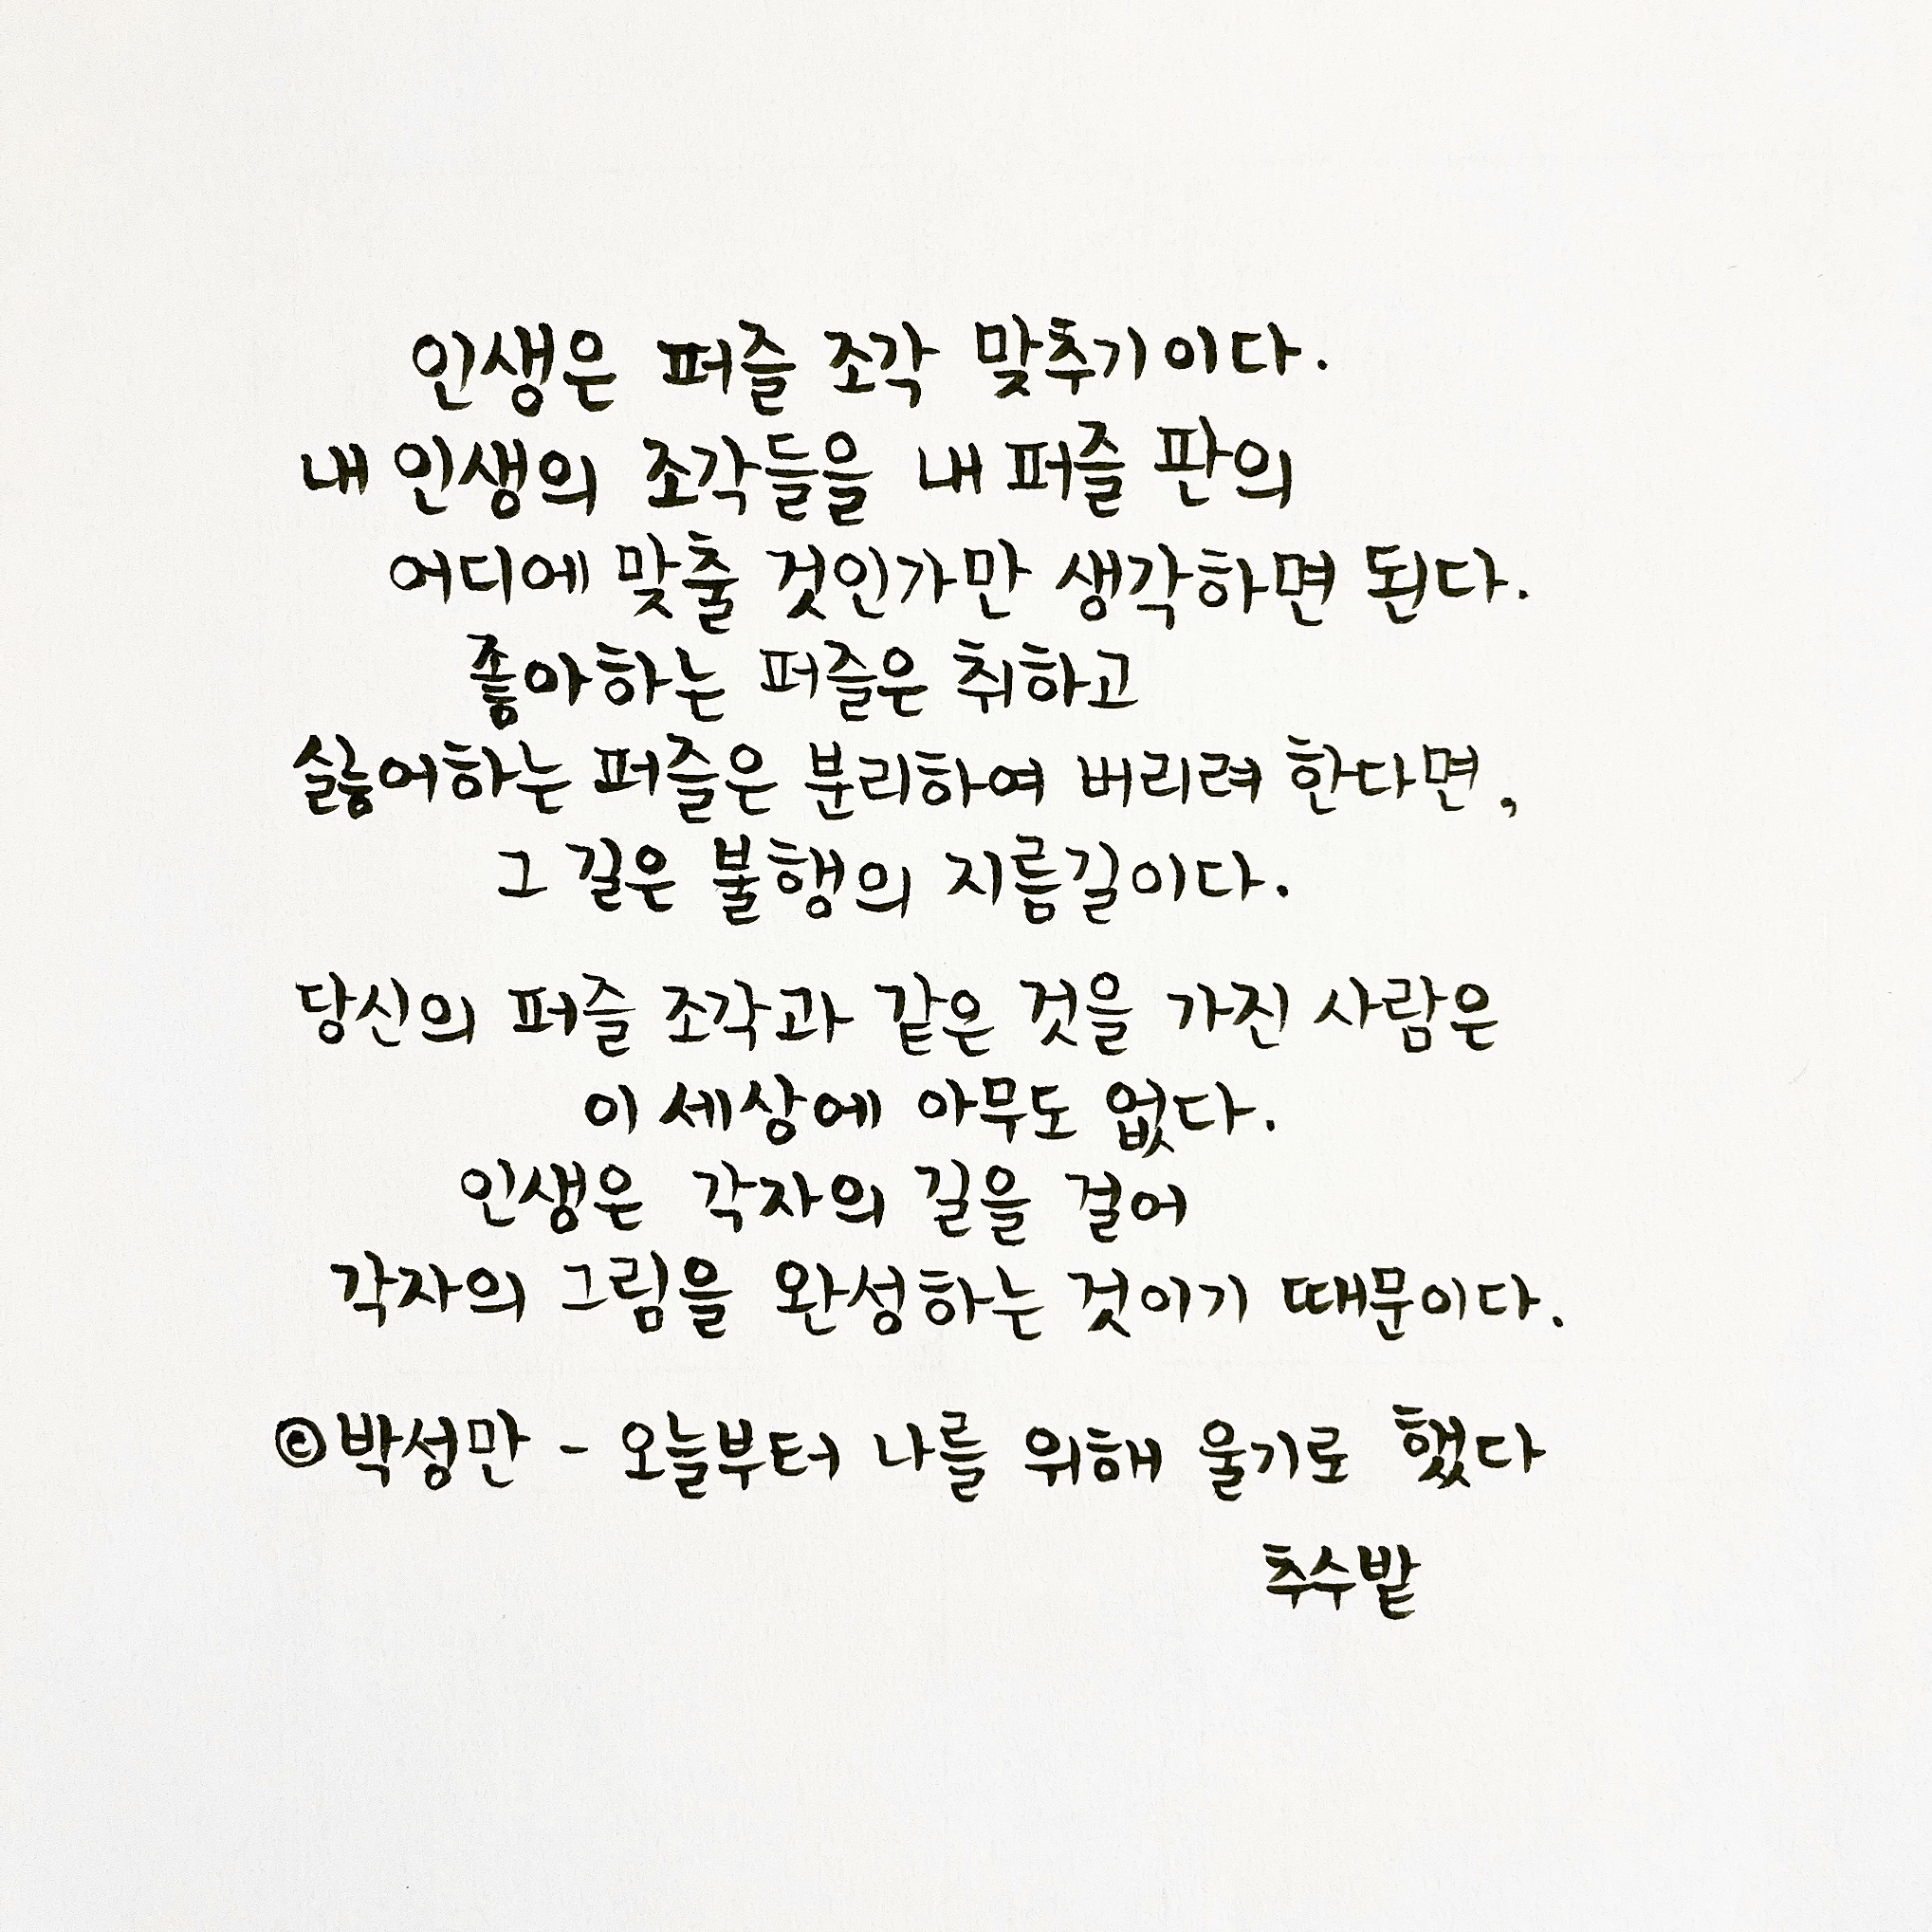 인생은 퍼즐 조각 맞추기이다.
내 인생의 조각들을 내 퍼즐 판의
어디에 맞출 것인가만 생각하면 된다.
좋아하는 퍼즐은 취하고
싫어하는 퍼즐은 분리하여 버리려 한다면,
그 길은 불행의 지름길이다.
당신의 퍼즐 조각과 같은 것을 가진 사람은
이 세상에 아무도 없다.
인생은 각자의 길을 걸어
각자의 그림을 완성하는 것이기 때문이다.
©박성만 - 오늘부터 나를 위해 울기로 했다
추수밭